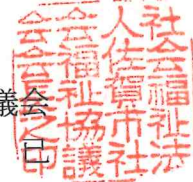 社会福祉法
人佐賀市社
会福祉協議
会会長之印
議会
已